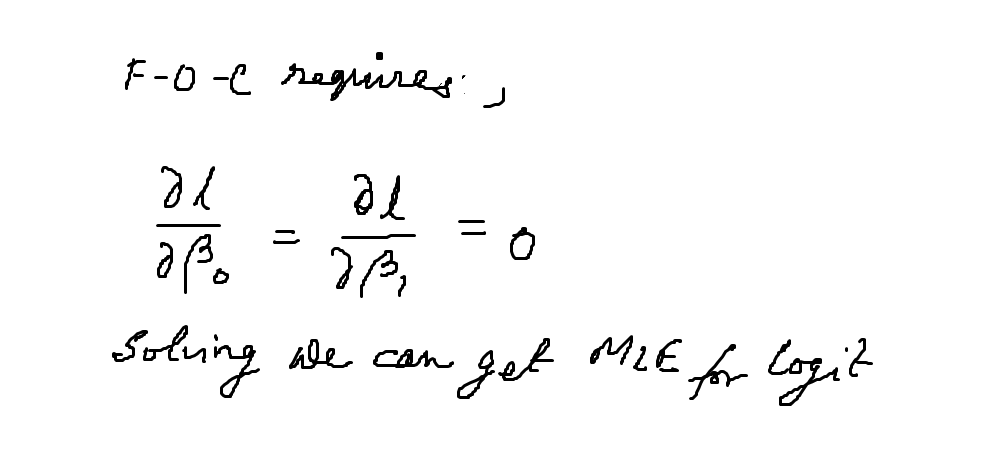 F-O-C requires,
∂l/∂β₀ = ∂l/∂β₁ = 0
Solving we can get MLE for logit